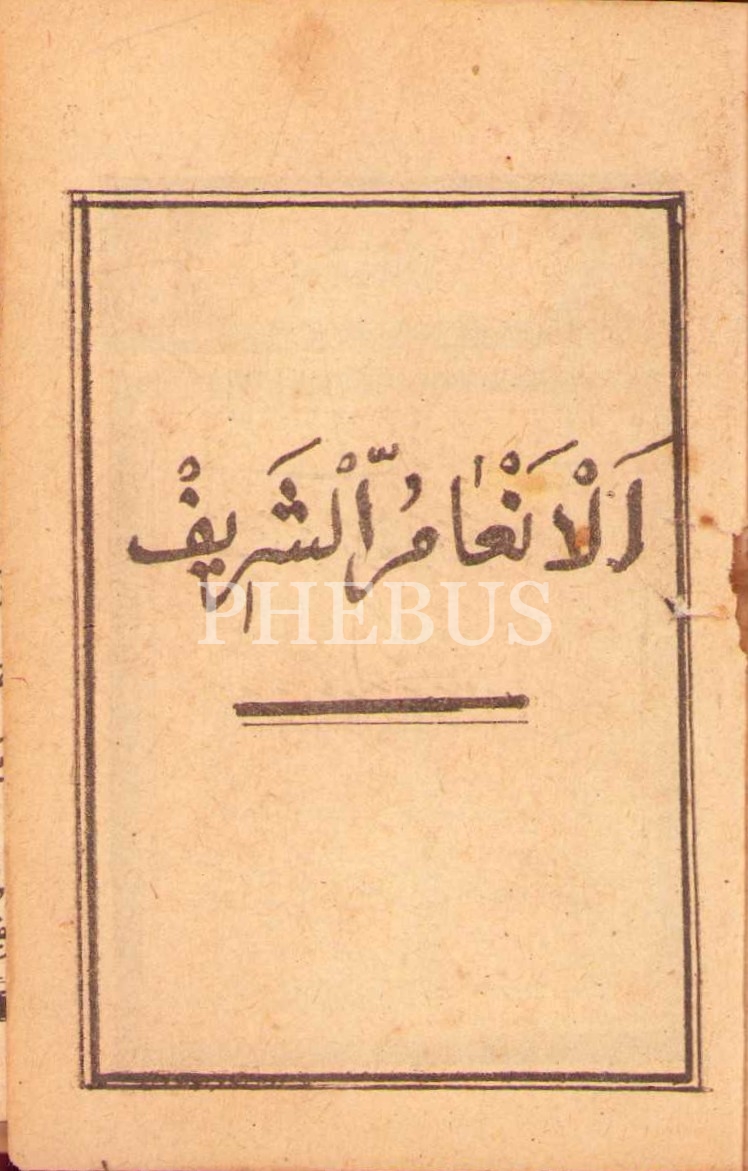 اَلْاَنْعٰامُ الْشَّرِيفْ
PHEBUS